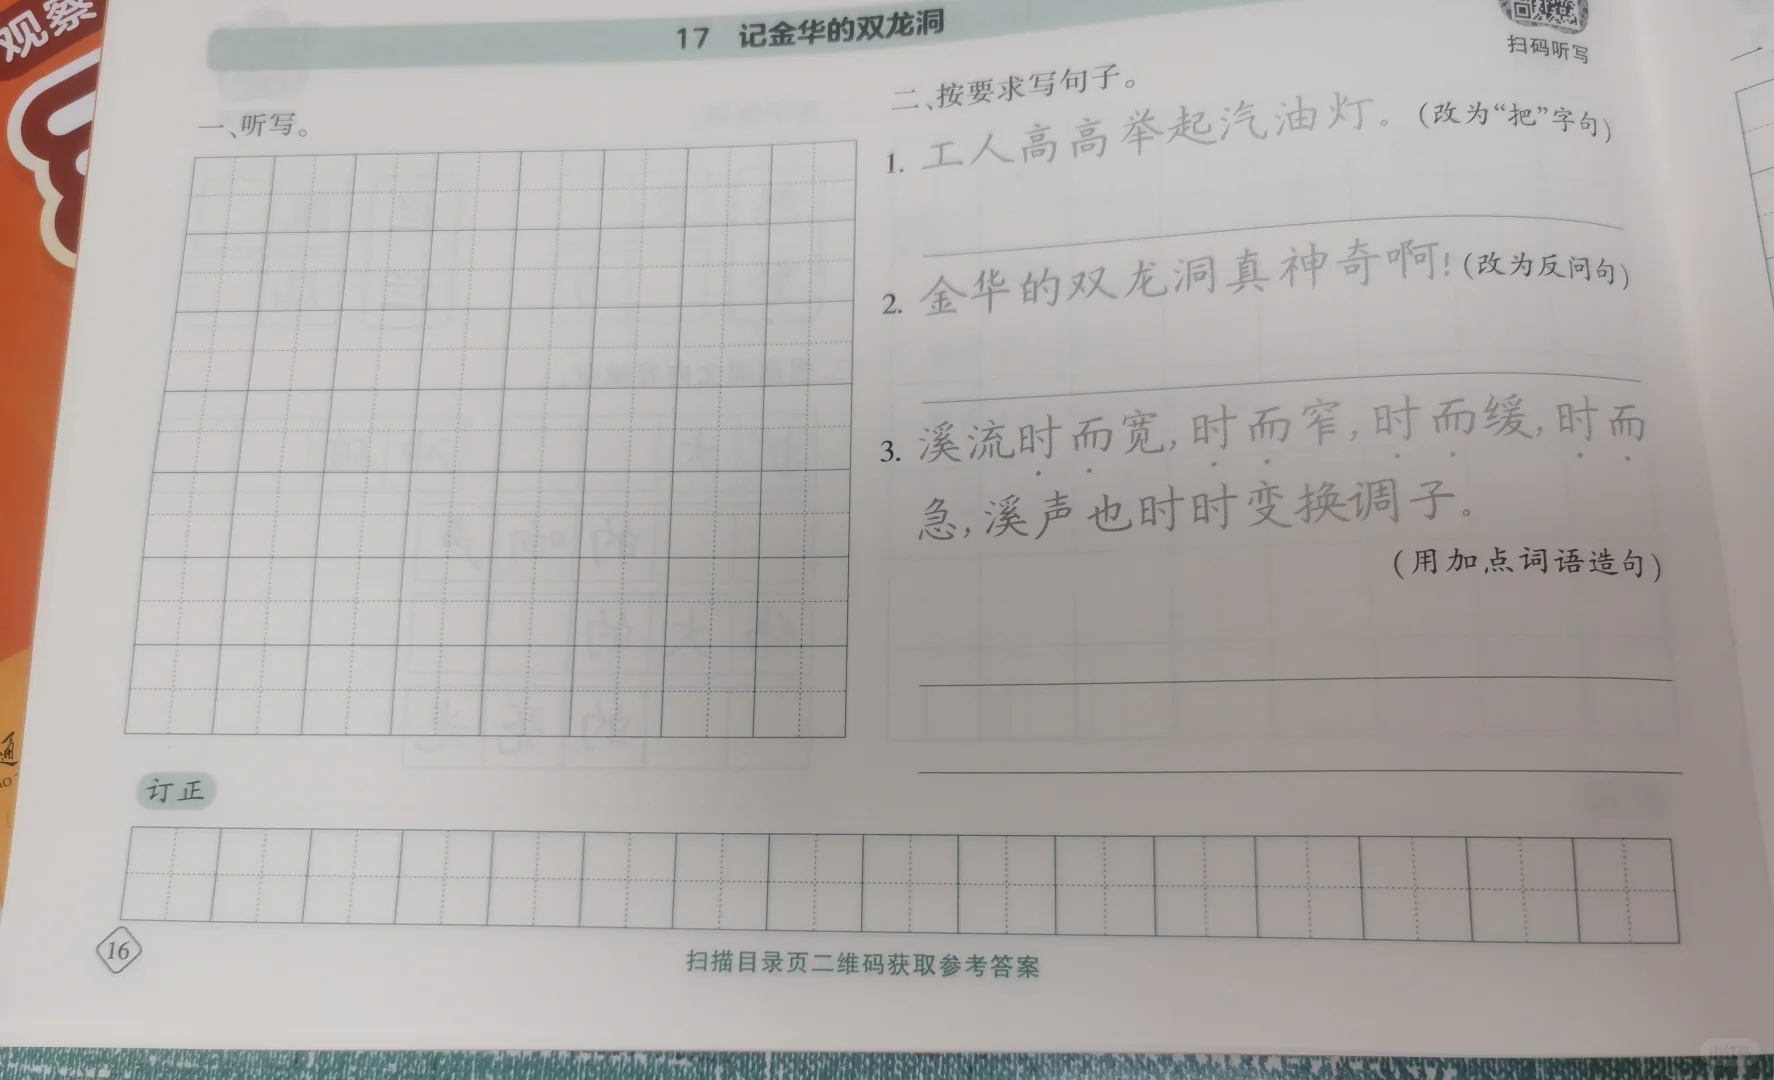 观察
17 记金华的双龙洞
扫码听写
一、听写。
二、按要求写句子。
1. 工人高高举起汽油灯。(改为“把”字句)
2. 金华的双龙洞真神奇啊!(改为反问句)
3. 溪流时而宽,时而窄,时而缓,时而
急,溪声也时时变换调子。
(用加点词语造句)
订正
16
扫描目录页二维码获取参考答案